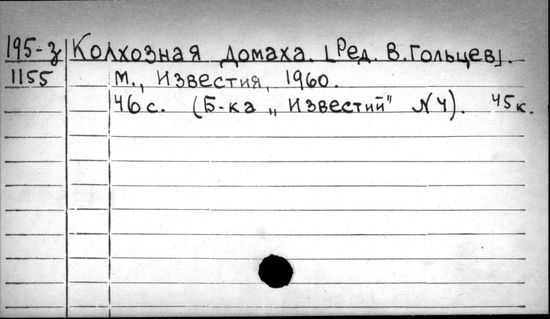 195-з Колхозная домаха. [Ред. В. Гольцев].
1155 М., Известия, 1960.
46 с. (Б-ка „Известий" №4). 45к.